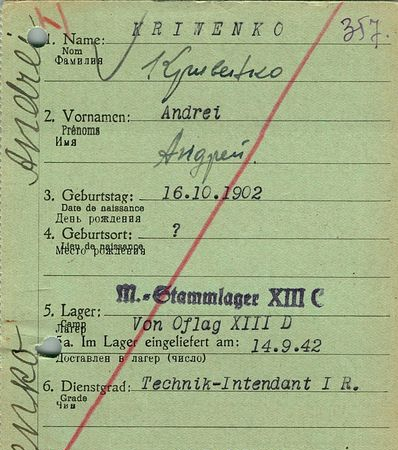 357.
1. Name: KRIWENKO
Nom
Фамилия
Кривенко
2. Vornamen: Andrei
Prénoms
Имя
Андрей.
3. Geburtstag: 16.10.1902
Date de naissance
День рождения
4. Geburtsort: ?
Lieu de naissance
Место рождения
M.-Stammlager XIII C
5. Lager: Von Oflag XIII D
Camp
Лагер
5a. Im Lager eingeliefert am: 14.9.42
Доставлен в лагер (число)
6. Dienstgrad: Technik-Intendant I R.
Grade
Чин
Andrei
enko